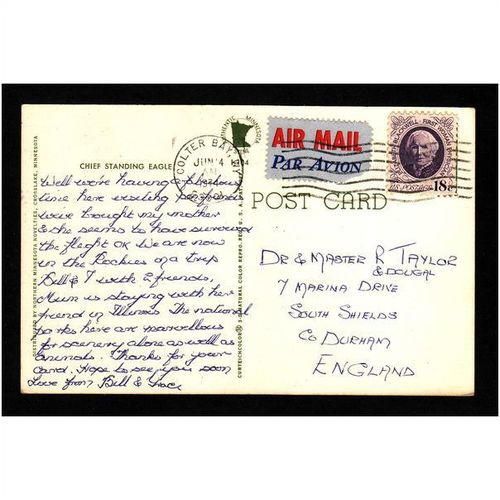 CHIEF STANDING EAGLE
Well we're having a
time here visiting
we've brought my mother
& she seems to have survived
the flight ok We are now
in the Rockies on a trip
Bill & I with 2 friends,
Mum is staying with her
friend in Illinois The national
parks here are marvellous
for scenery alone as well as
animals. Thanks for your
card. Hope to see you soon
Love from Bill & Grace
DISTRIBUTED BY NORTHERN MINNESOTA NOVELTIES, CROSSLAKE, MINNESOTA
AUTHENTIC MINNESOTA
COLTER BAY
JUN 4
AIR MAIL
PAR AVION
FIRST WOMAN PHYSICIAN
U.S. POSTAGE 18c
POST CARD
DR & MASTER R TAYLOR
& DOUGAL
7 MARINA DRIVE
SOUTH SHIELDS
CO DURHAM
ENGLAND